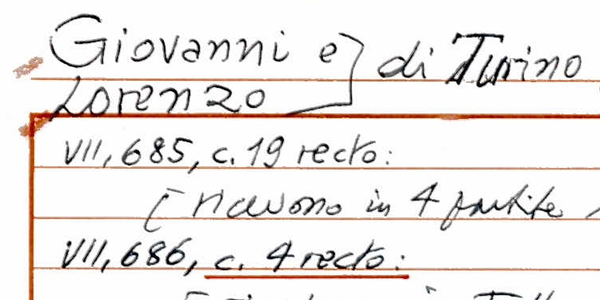 Giovanni e] di Turino
Lorenzo
VII, 685, c. 19 recto:
[ricevono in 4 partite
VII, 686, c. 4 recto: